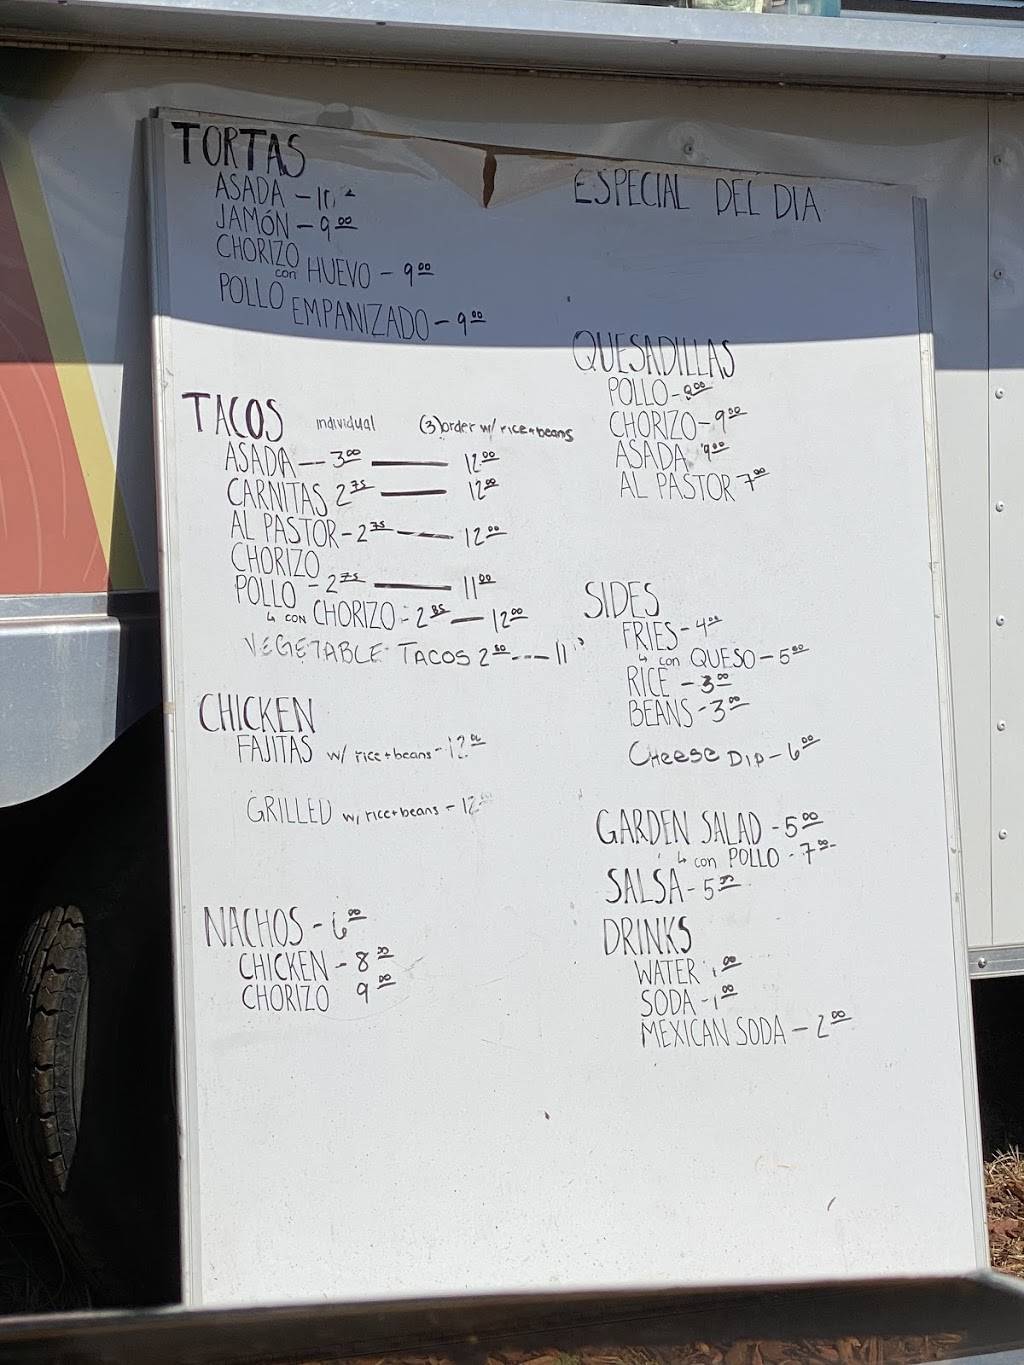 TORTAS
ASADA -
JAMÓN - 9.00
CHORIZO
con HUEVO - 9.00
POLLO EMPANIZADO - 9.00
TACOS individual (3) order w/ rice + beans
ASADA — 3.00 — 12.00
CARNITAS 2.75 — 12.00
AL PASTOR - 2.75 — 12.00
CHORIZO
POLLO - 2.75 — 11.00
↳ CON CHORIZO - 2.85 — 12.00
VEGETABLE TACOS 2.50 --- 11
CHICKEN
FAJITAS w/ rice + beans - 12.00
GRILLED w/ rice + beans - 12
NACHOS - 6.00
CHICKEN - 8.00
CHORIZO 9.00
ESPECIAL DEL DIA
QUESADILLAS
POLLO - 8.00
CHORIZO - 9.00
ASADA 9.00
AL PASTOR 7.00
SIDES
FRIES - 4.00
↳ con QUESO - 5.00
RICE - 3.00
BEANS - 3.00
CHEESE DIP - 6.00
GARDEN SALAD - 5.00
↳ con POLLO - 7.00
SALSA - 5.00
DRINKS
WATER 1.00
SODA - 1.00
MEXICAN SODA - 2.00